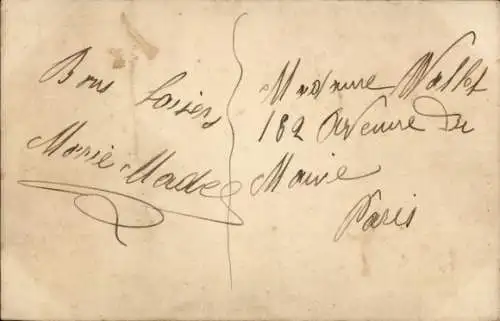 Bons loisirs
Marie Made
Madame Wallet
182 Avenue du
Maine
Paris